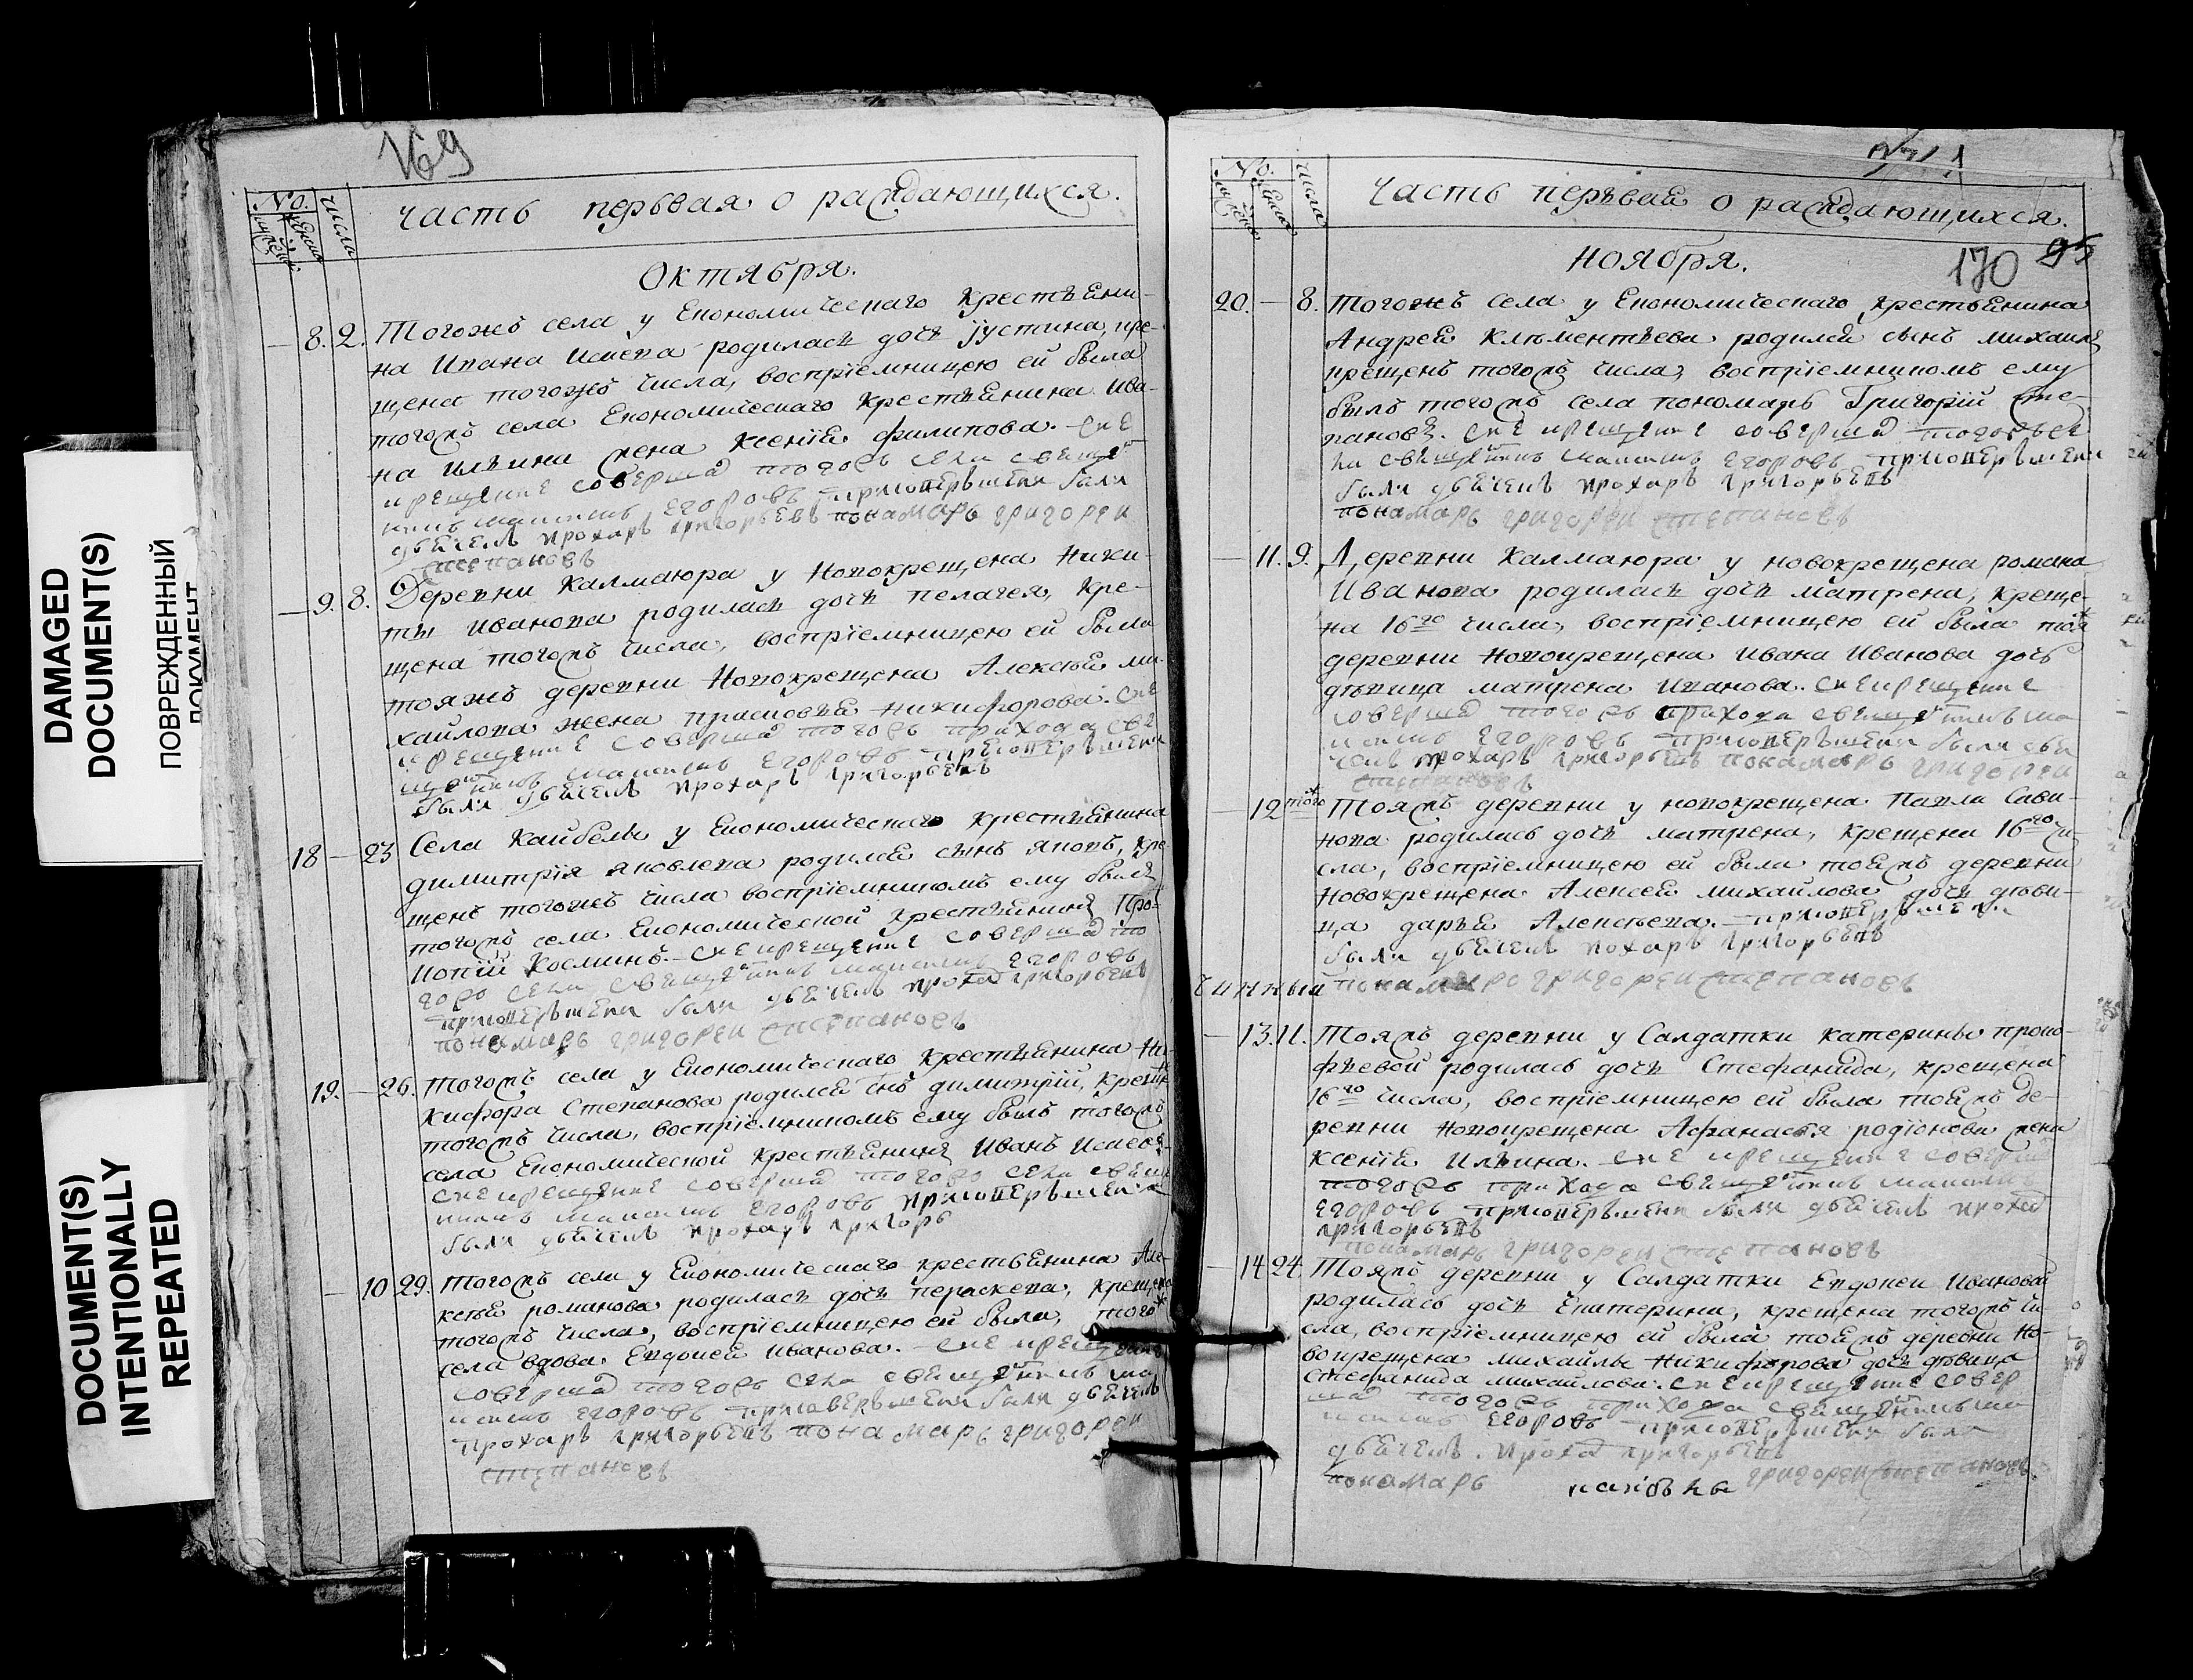 DAMAGED
DOCUMENT(S)
ПОВРЕЖДЕННЫЙ
ДОКУМЕНТ
DOCUMENT(S)
INTENTIONALLY
REPEATED
169
No.
числа
часть первая о раждающихся.
Октября.
— 8. 2. Тогожъ села у Економическаго крестьяни-
на Ивана Исаева родилась дочь Іустина, кре-
щена тогожъ числа, воспріемницею ей была
тогожъ села Економическаго крестьянина Ива-
на Ильина жена Ксенія Филипова. сие
крещение совершал тогожъ села священ
никъ Максимъ Егоровъ при том
были дьячекъ Прохаръ Григорьевъ понамарь Григореи
Степановъ
— 9. 8. Деревни Калмаюра у Новокрещена Ники-
ты Иванова родилась дочь Пелагея, кре-
щена тогожъ числа, воспріемницею ей была
тояжъ деревни Новокрещена Алексея Ми-
хайлова жена Прасковья Никифорова. сие
крещение совершал тогожъ прихода свя
щенникъ Максимъ Егоровъ
были дьячекъ Прохаръ Григорьевъ
18 — 23 Села Кайбелы у Економическаго крестьянина
Димитрія Яковлева родился сынъ Яковъ, кре
щенъ тогожъ числа воспріемникомъ ему былъ
тогожъ села Економической крестьянинъ Про-
копій Косминъ. — сие крещение совершал то
гожъ села священникъ Максимъ Егоровъ
были дьячекъ Прохар Григорьевъ
понамарь Григореи Степановъ
19. — 26. Тогожъ села у Економическаго крестьянина Ни-
кифора Степанова родился снъ Димитрій, крещен
тогожъ числа, воспріемникомъ ему былъ тогожъ
села Економической крестьянинъ Иванъ Исаевъ
сие крещение совершал тогожъ села священ
никъ Максимъ Егоровъ
были дьячекъ Прохаръ Григорь
— 10 29. Тогожъ села у Економическаго крестьянина Але-
ксея Романова родилась дочь Параскева, крещена
тогожъ числа, воспріемницею ей была, того ж
села вдова Евдокея Иванова. — сие крещение
совершал тогожъ села священникъ Ма
ксимъ Егоровъ были дьячекъ
Прохаръ Григорьевъ понамарь Григореи
Степановъ
No.
числа
Часть первая о раждающихся.
Ноября. 170 95
20. — 8. Тогожъ села у Економическаго крестьянина
Андрея Климентьева родился сынъ Михаилъ
крещенъ тогожъ числа, воспріемникомъ ему
былъ тогожъ села пономарь Григорій Сте-
пановъ. сие крещение совершал тогожъ се
ла священникъ Максимъ Егоровъ
были дьячекъ Прохаръ Григорьевъ
понамарь Григореи Степановъ
— 11. 9. Деревни Калмаюра у новокрещена Романа
Иванова родилась дочь Матрена, креще-
на 16го числа, воспріемницею ей была тоя ж
деревни Новокрещена Ивана Иванова дочь
девица Матрена Иванова. сие крещение
совершал тогожъ прихода священникъ Ма
ксимъ Егоровъ были дья
чекъ Прохаръ Григорьевъ понамарь Григореи
Степановъ
— 12 того ж Тояжъ деревни у новокрещена Павла Сави-
нова родилась дочь Матрена, крещена 16го чи-
сла, воспріемницею ей была тояжъ деревни
Новокрещена Алексея Михайлова дочь деви-
ца Дарья Алексеева. —
были дьячекъ Прохаръ Григорьевъ
чинный понамарь Григореи Степановъ
— 13. 11. Тояжъ деревни у Салдатки Катерины Проко-
фьевой родилась дочь Стефанида, крещена
16го числа, воспріемницею ей была тояжъ де-
ревни Новокрещена Афанасья Родіонова жена
Ксенія Ильина. сие крещение совершал
тогожъ прихода священникъ Максимъ
Егоровъ были дьячекъ Прохар
Григорьевъ
понамарь Григореи Степановъ
— 14 24 Тояжъ деревни у Салдатки Евдокеи Ивановой
родилась дочь Екатерина, крещена тогожъ чи-
сла, воспріемницею ей была тояжъ деревни Но-
вокрещена Михайлы Никифорова дочь девица
Стефанида Михайлова. сие крещение совер
шал тогожъ прихода священникъ Ма
ксимъ Егоровъ были
дьячекъ. Прохар Григорьевъ
понамарь Григореи Степановъ.